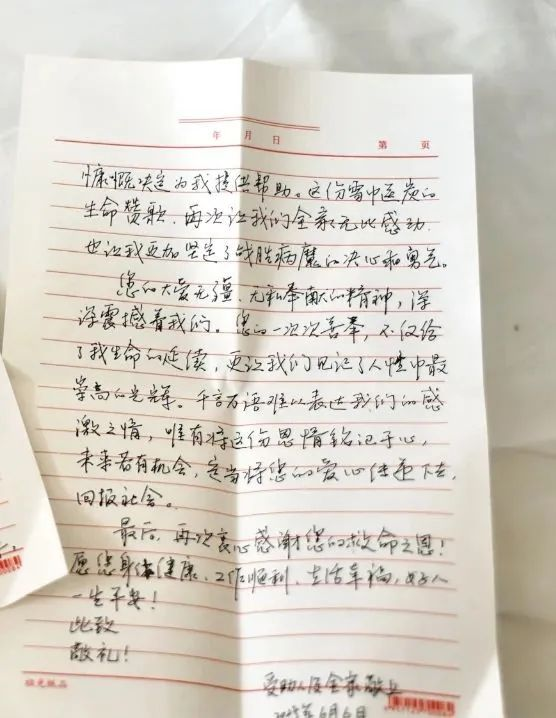 年 月 日 第 页
慷慨决定为我提供帮助。这份雪中送炭的
生命赞歌,再次让我们全家无比感动,
也让我更加坚定了战胜病魔的决心和勇气。
您的大爱无疆、无私奉献的精神,深
深震撼着我们。您的一次次善举,不仅给
了我生命的延续,更让我们见证了人性中最
崇高的光辉。千言万语难以表达我们的感
激之情,唯有将这份恩情铭记于心,
未来若有机会,定当将您的爱心传递下去,
回报社会。
最后,再次衷心感谢您的救命之恩!
愿您身体健康、工作顺利、生活幸福,好人
一生平安!
此致
敬礼!
受助人及全家敬上
年6月6日